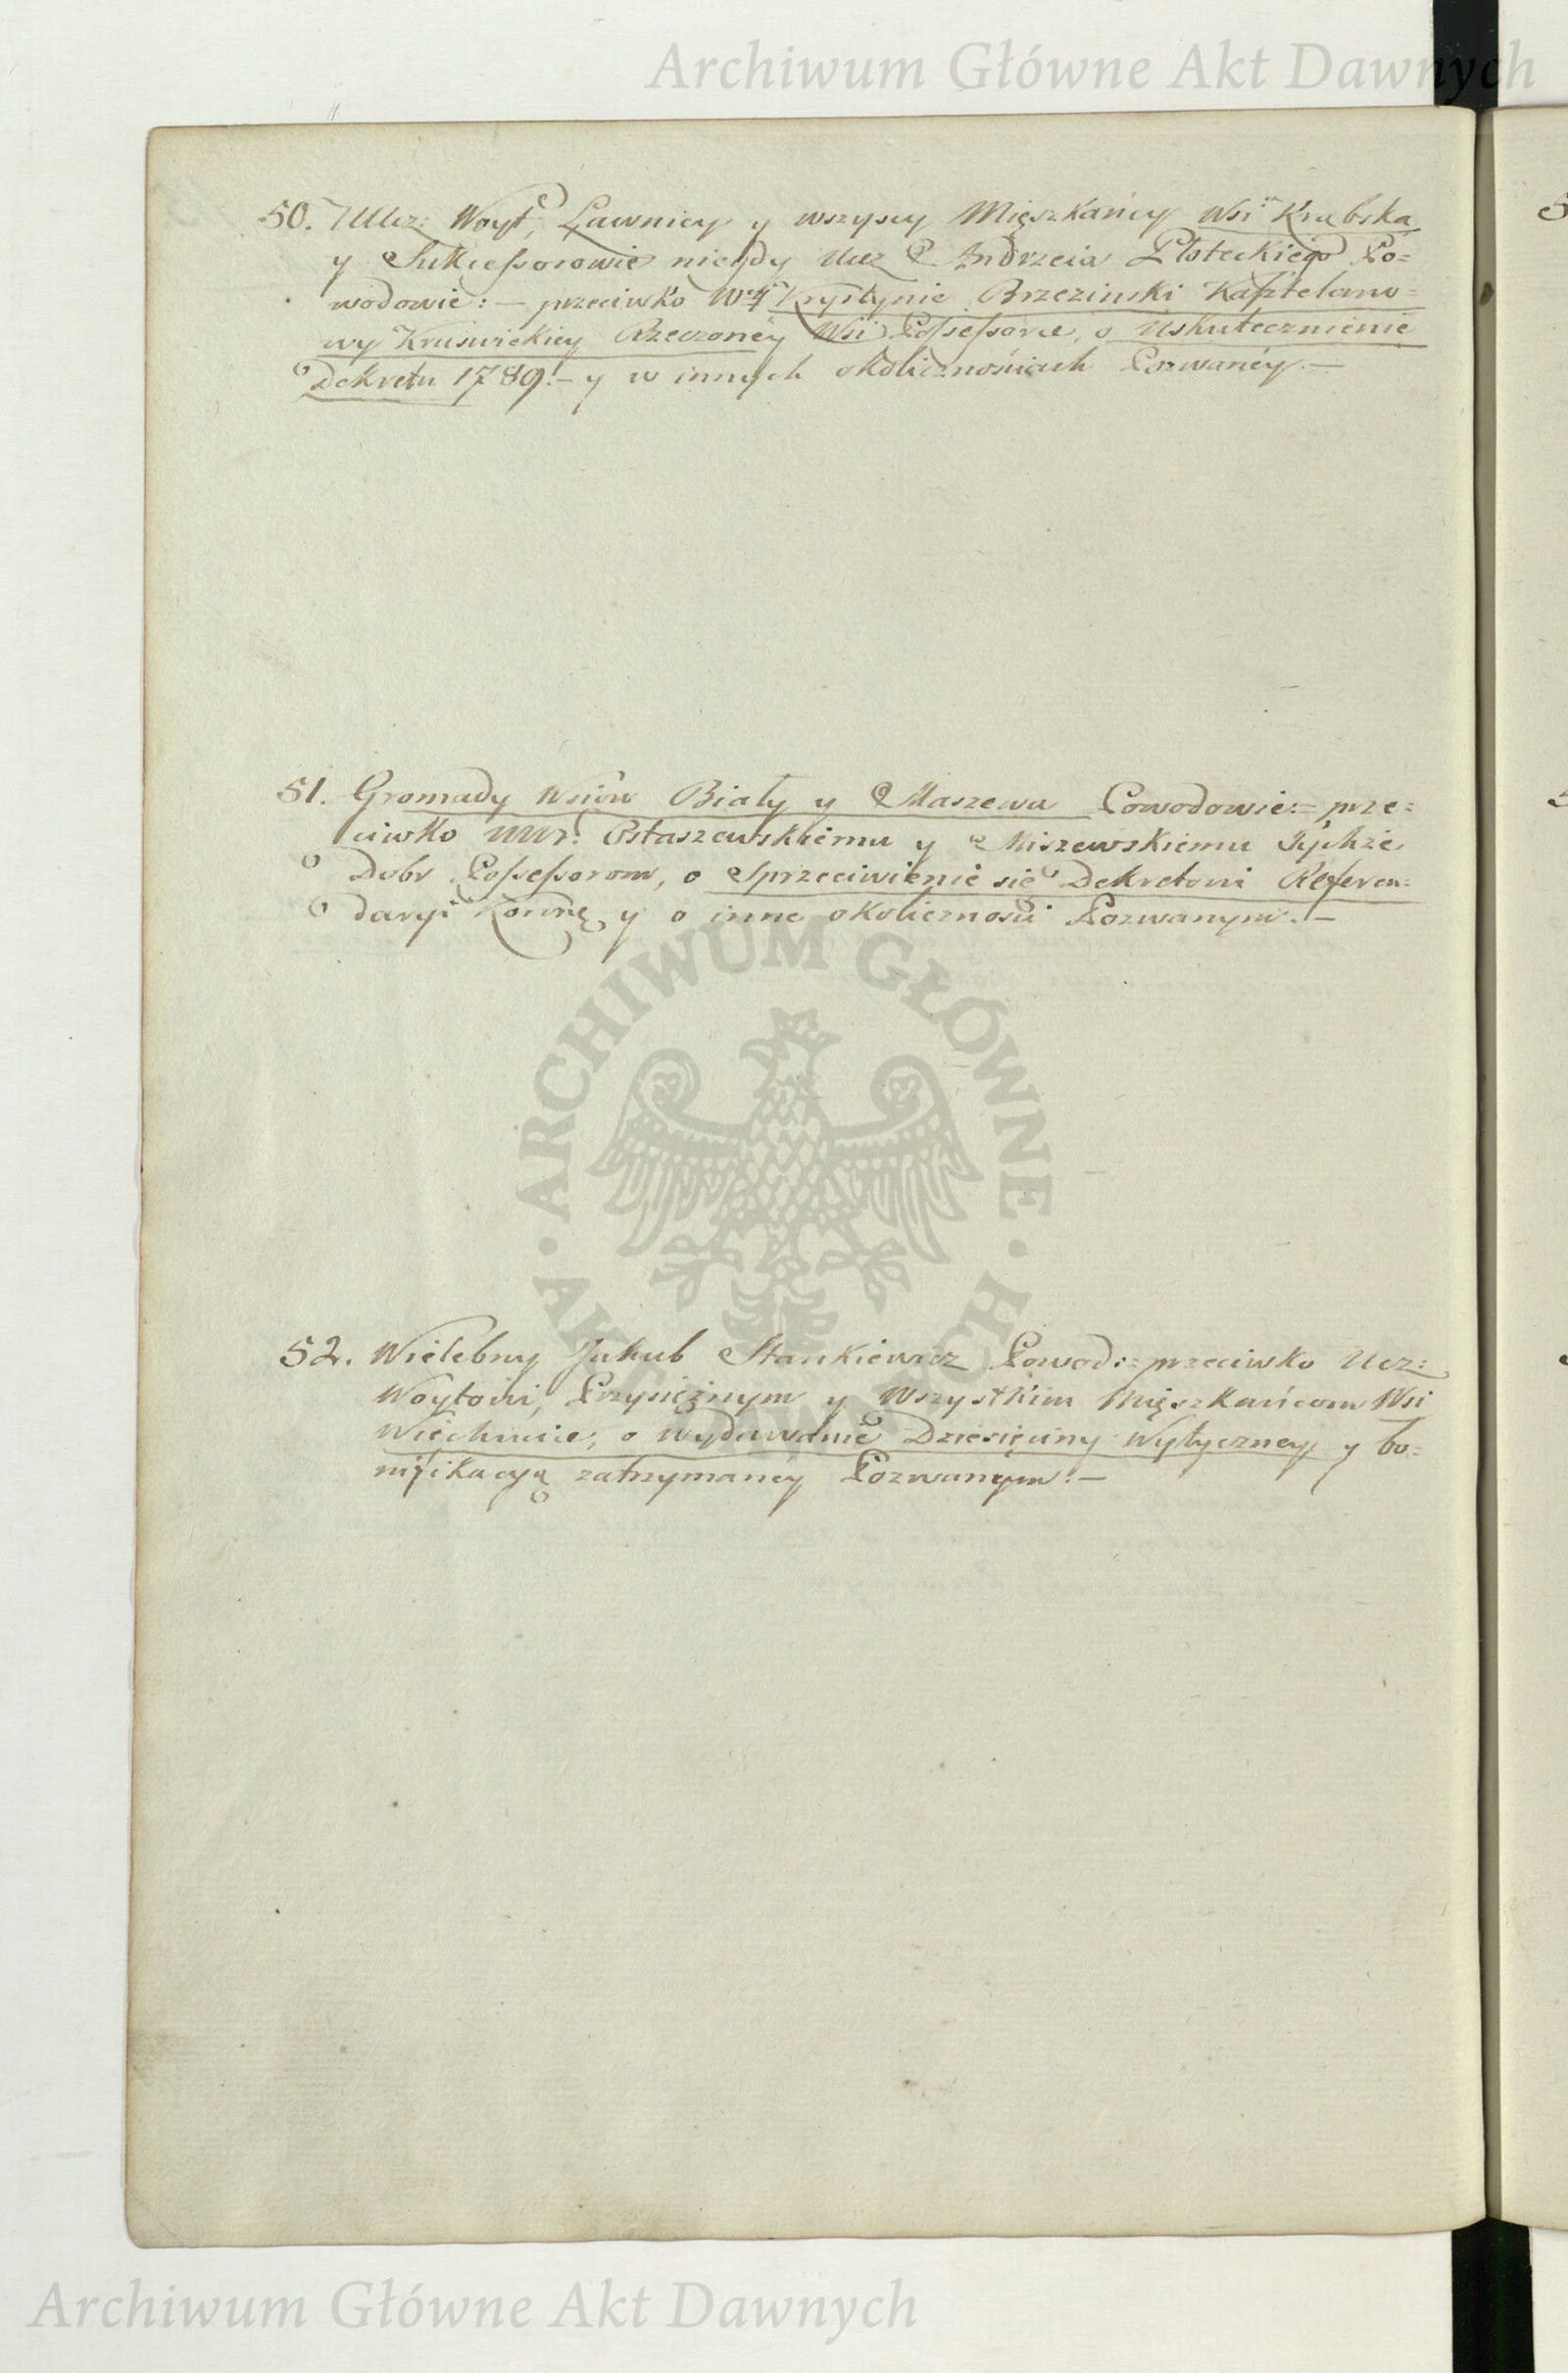 Archiwum Główne Akt Dawnych
50. UUcz: Woyt, Ławnicy y wszyscy Mięszkańcy Wsi Krąbska
y Sukcessorowie niegdy Ucz P. Andrzeia Płoteckiego Po=
wodowie: – przeciwko Krystynie Brzezinski Kasztelano=
wy Kruswickiey Rzeczoney Wsi Possessorce, o Uskutecznienie
Dekretu 1789. – y w innych okolicznościach Pozwaney. –
51. Gromady Wsiów Biały y Maszewa Powodowie: – prze=
ciwko UUr: Ostaszewskiemu y Miszewskiemu Tychże
Dobr Possessorom, o Sprzeciwienie się Dekretowi Referen=
daryi Koronnę y o inne okoliczności Pozwanym. –
52. Wielebny Jakub Stankiewicz Powod: – przeciwko Ucz:
Woytowi, Przysiężnym y Wszystkim Mięszkańcom Wsi
Wiechnice, o wydawanie Dziesięciny Wytyczney y bo=
nifikacyą zatrzymaney Pozwanym: –
ARCHIWUM GŁÓWNE · AKT DAWNYCH ·
Archiwum Główne Akt Dawnych